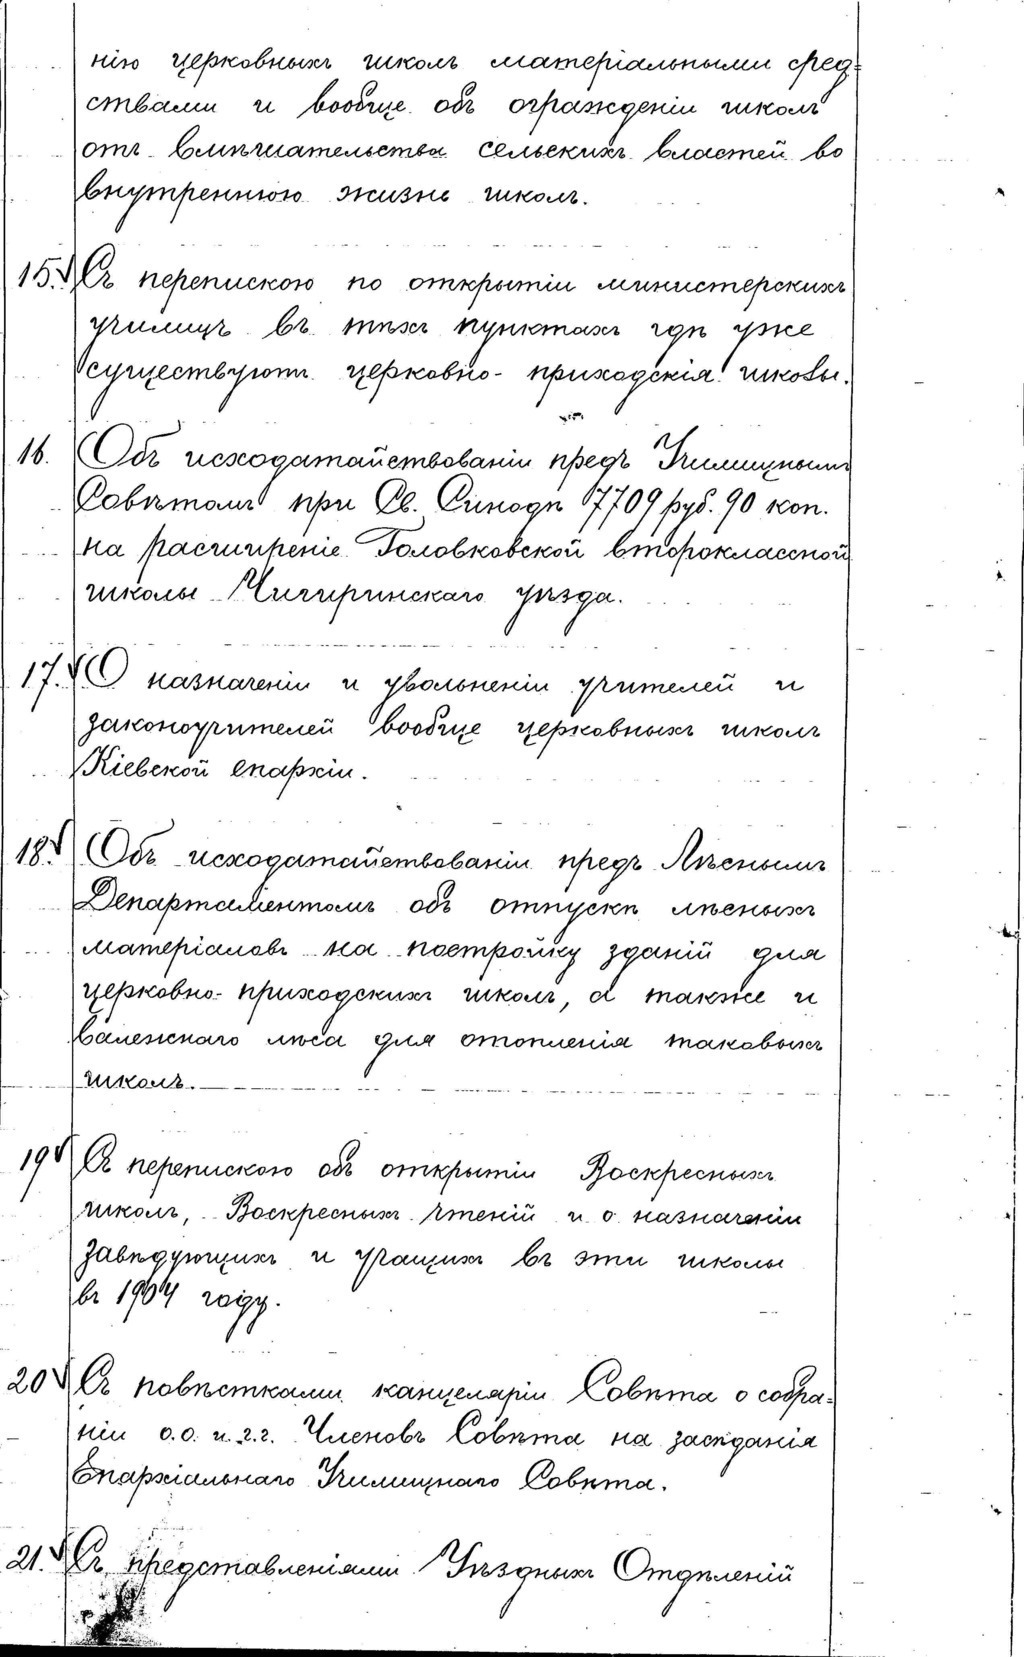 нію церковныхъ школъ матеріальными сред=
ствами и вообще объ огражденіи школъ
отъ вмѣшательства сельскихъ властей во
внутреннюю жизнь школъ.
15. Съ перепискою по открытіи министерскихъ
училищъ въ тѣхъ пунктахъ гдѣ уже
существуютъ церковно-приходскія школы.
16. Объ исходатайствованіи предъ Училищнымъ
Совѣтомъ при Св. Синодѣ 7709 руб. 90 коп.
на расширеніе Головковской второклассной
школы Чигиринскаго уѣзда.
17. О назначеніи и увольненіи учителей и
законоучителей вообще церковныхъ школъ
Кіевской епархіи.
18. Объ исходатайствованіи предъ Лѣснымъ
Департаментомъ объ отпускѣ лѣсныхъ
матеріаловъ на постройку зданій для
церковно-приходскихъ школъ, а также и
валежнаго лѣса для отопленія таковыхъ
школъ.
19 Съ перепискою объ открытіи Воскресныхъ
школъ, Воскресныхъ чтеній и о назначеніи
завѣдующихъ и учащихъ въ эти школы
въ 1904 году.
20 Съ повѣстками канцеляріи Совѣта о собра=
ніи о.о. и г.г. Членовъ Совѣта на засѣданія
Епархіальнаго Училищнаго Совѣта.
21. Съ представленіями Уѣздныхъ Отдѣленій